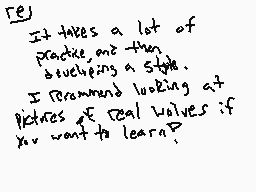 rej
It takes a lot of
practice, and then
developing a style.
I recommend looking at
pictures of real wolves if
you want to learn?